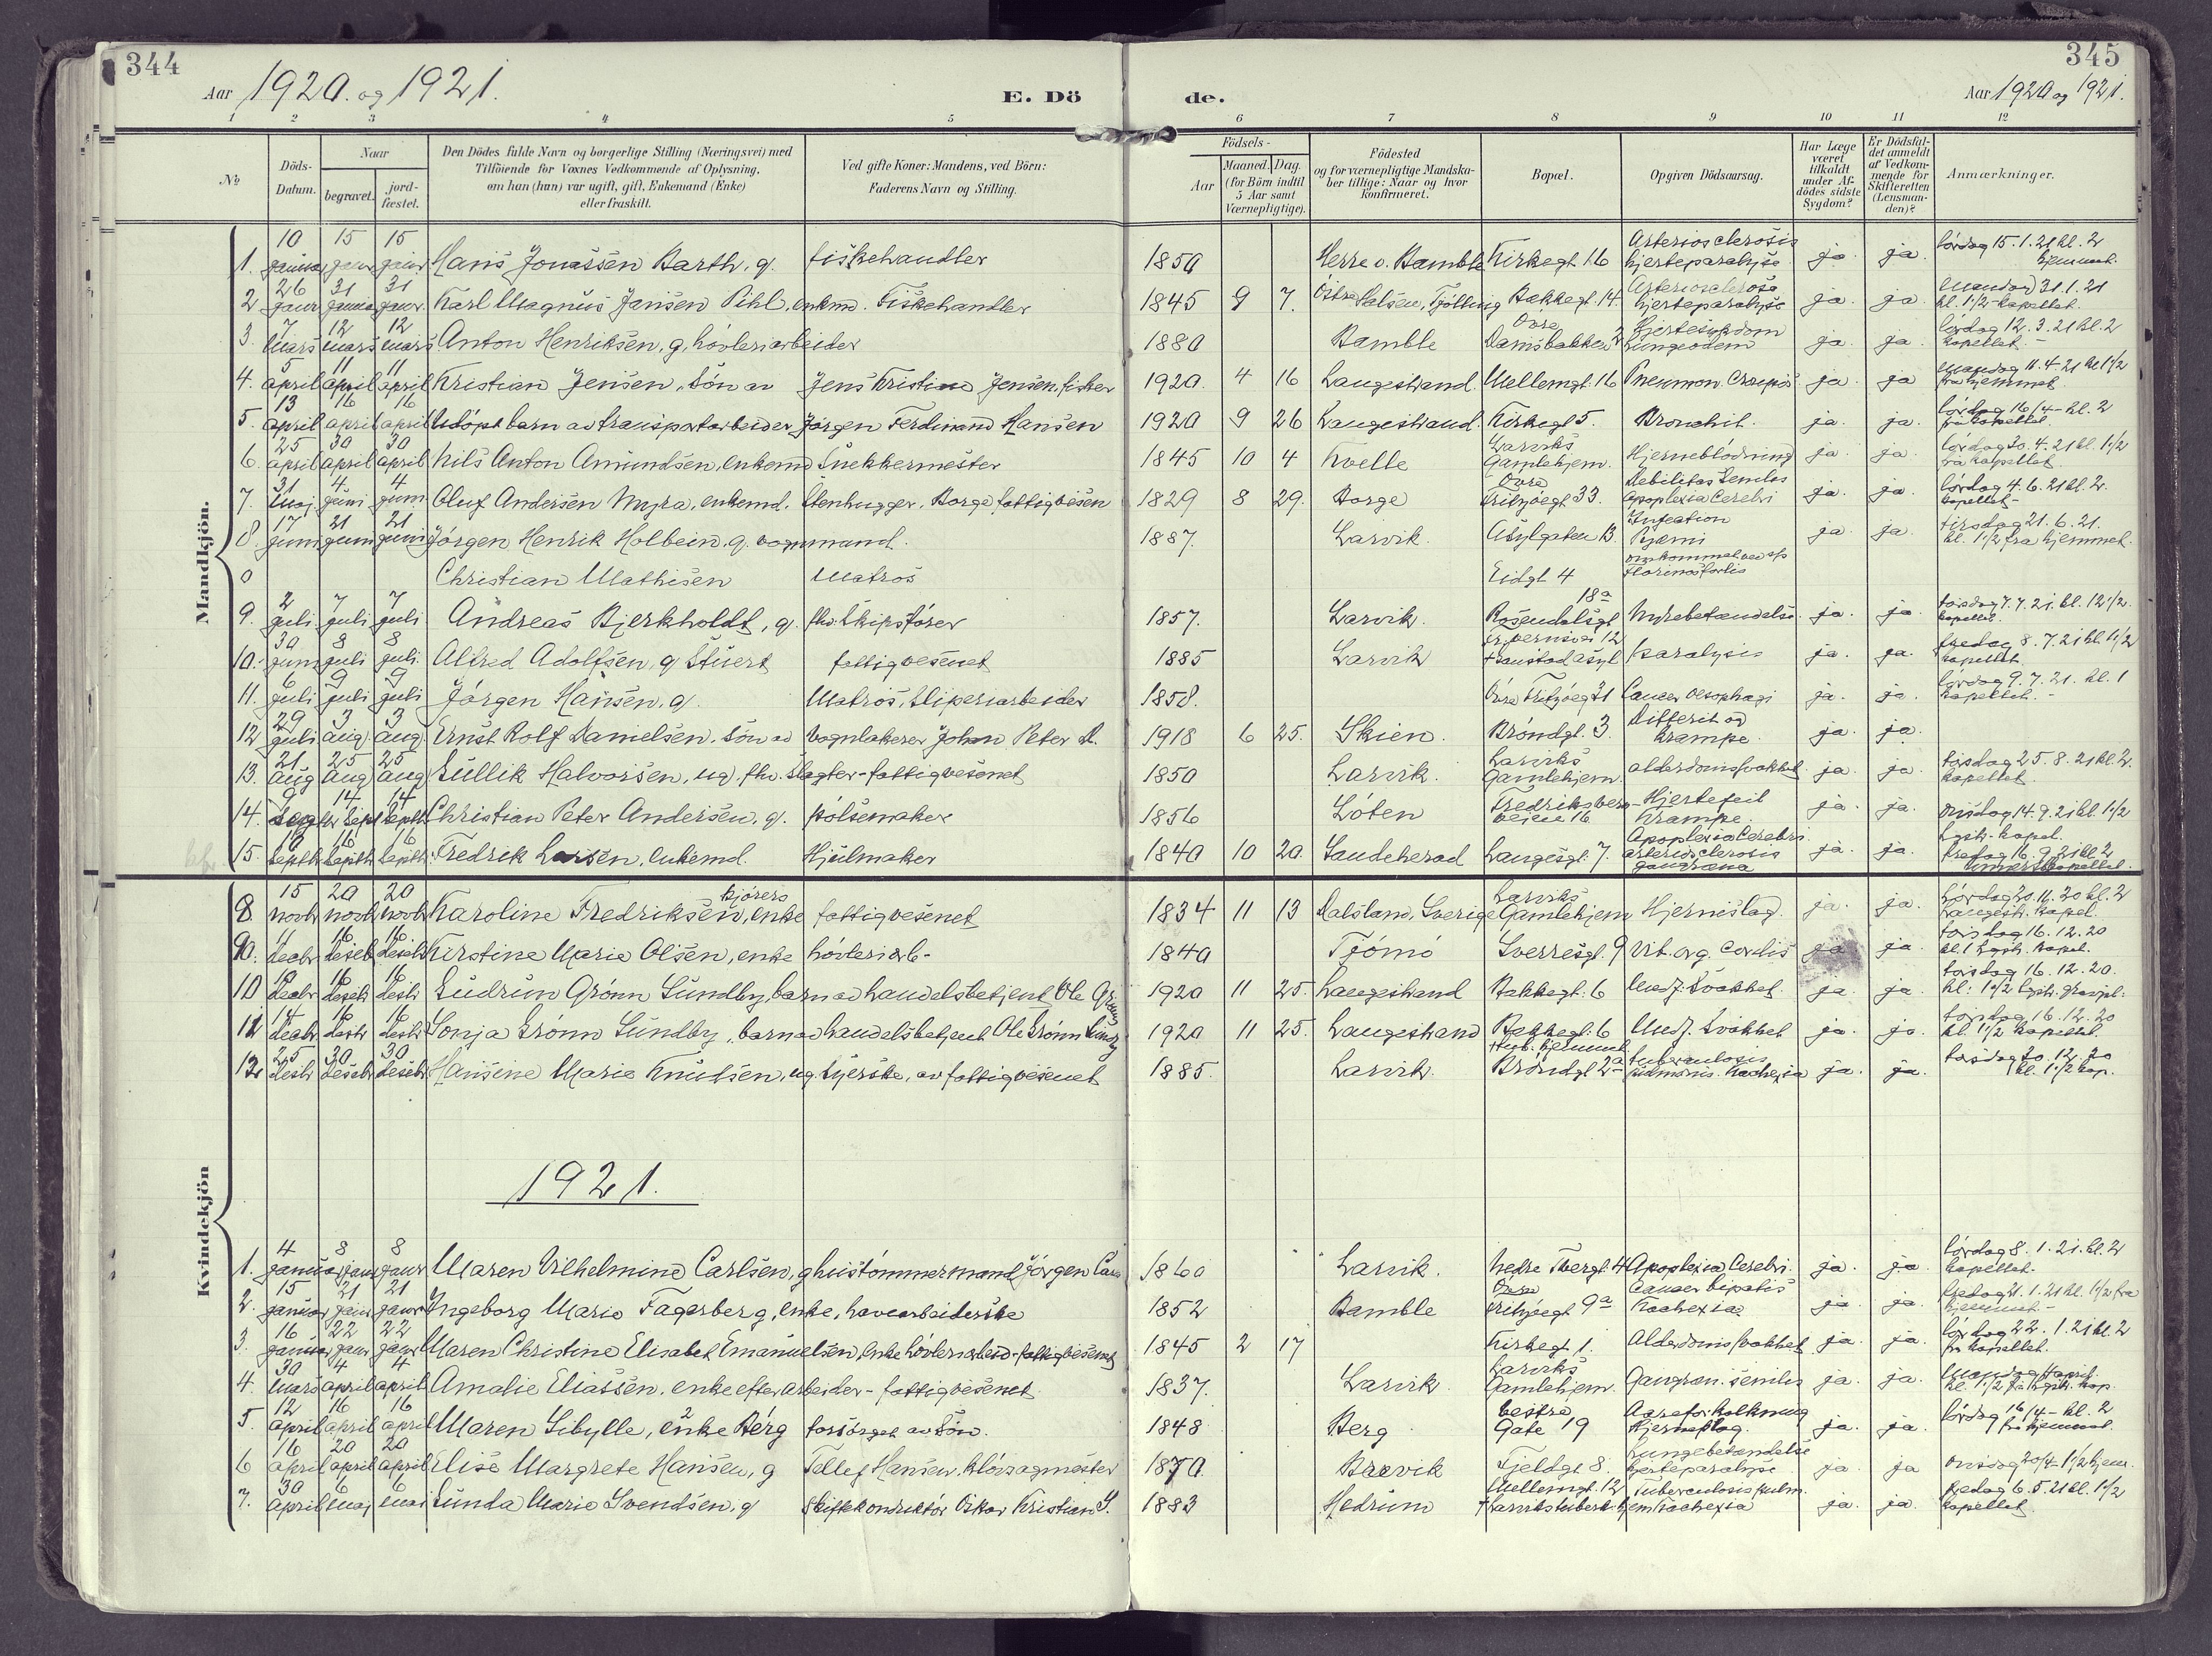 344
345
Aar 1920. og 1921.
E. Dö
de.
Aar 1920 og 1921.
1 2 3 4 5 6 7 8 9 10 11 12
No
Döds-Datum.
Naar
begravet.
jord-fæstet.
Den Dödes fulde Navn og borgerlige Stilling (Næringsvei) med
Tilföiende for Voxnes Vedkommende af Oplysning,
om han (hun) var ugift, gift, Enkemand (Enke)
eller fraskilt.
Ved gifte Koner: Mandens, ved Börn:
Faderens Navn og Stilling.
Födsels-
Aar
Maaned.
Dag.
(for Börn indtil
5 Aar samt
Værnepligtige).
Födested
og for værnepligtige Mandska-
ber tillige: Naar og hvor
konfirmeret.
Bopæl.
Opgiven Dödsaarsag.
Har Læge
været
tilkaldt
under Af-
dödes sidste
Sygdom?
Er Dödsfal-
det anmeldt
af Vedkom-
mende for
Skifteretten
(Lensman-
den)?
Anmærkninger.
Mandkjön.
1. 10 januar 15 janr 15 janr Hans Jonassen Barth, g. fiskehandler 1850 Herre v. Bamble Kirkegt. 16 Arteriosclerosis hjerteparalyse ja. ja. lørdag 15.1.21 kl. 2 hjemmet.
2 26 janr 31 januar 31 janr. Karl Magnus Jansen Pihl, enkmd. Fiskehandler 1845 9 7. Østre Halsen, Tjølling Bakkegt. 14. Arteriosclerose hjerteparalyse ja. ja. mandag 31.1.21 kl. 1 1/2 kapellet.
3. 7 mars 12 mars 12 mars Anton Henriksen, g, høvleriarbeider 1880 Bamble Øvre Damsbakken 2 Hjertesygdom Lungeødem ja. ja. lørdag 12.3.21 kl. 2 kapellet.
4. 5 april 11 april 11 april Kristian Jensen, søn av Jens Kristian Jensen, fisker 1920. 4 16 Langestrand. Mellemgt. 16 Pneumon. Croupös ja. ja mandag 11.4.21 kl 1 1/2 fra hjemmet
5. 13 april 16 april 16 april Udøpt barn av transportarbeider Jørgen Ferdinand Hansen 1920 9 26 Langestrand. Kirkegt 5. Bronchit. ja. ja. lørdag 16/4 - kl. 2 fra kapellet.
6. 25 april 30 april 30 april Nils Anton Amundsen, enkemd Snekkermester 1845 10 4 Kvelle Larviks Gamlehjem. Hjerneblødning ja. ja. lørdag 30.4.21 kl. 1 1/2 fra kapellet.
7. 31 maj. 4 juni 4 juni Oluf Andersen Myra, enkemd. Stenhugger. Borge fattigvesen 1829 8 29. Borge Øvre Fritzøegt 33. Debilitas Senilis Apoplexia Cerebri ja. ja. lørdag 4.6.21 kl. 2. kapellet-
8. 17 juni 21 juni 21 juni Jørgen Henrik Holbein, g. vognmand. 1887. Larvik. Asylgaten 13. Infeation Pyæmi ja. ja. tirsdag 21.6.21. kl. 1 1/2 fra hjemmet.
0 Christian Mathisen Matros Eidgt 4 omkommet ved s/s
9. 2 juli 7 juli 7 juli Andreas Bjerkholdt, g. fhv. Skipsfører 1857. Larvik. Rosendalsgt 18a Nyrebetændelse. ja. ja. torsdag 7.7.21. kl. 12 1/2. kapellet.
10. 30 juni 8 juli 8 juli. Alfred Adolfsen, g Stuert fattigvesenet 1885 Larvik 12 asyl paralysis ja. ja. fredag 8.7.21 kl 1 1/2 kapellet.
11. 6 juli 9 juli 9 juli Jørgen Hansen, g. Matros, sliperiarbeider 1858. Øvre Fritzøegt 31 Cancer oesophagi ja. ja lørdag 9.7.21. kl. 1 kapellet.
12 29 juli 3 aug. 3 aug. Ernst Rolf Danielsen. søn av Vognlakerer Johan Peter D. 1918 6 25. Skien. Brøndgt. 3. Differit og krampe. ja. ja.
13. 21 aug 25 aug 25 aug Gullik Halvorsen, ug. fhv. Slagter - fattigvesenet 1850 Larvik. Larviks Gamlehjem. alderdomssvakhet ja. ja. torsdag 25.8.21 kl. 2. kapellet.
14. 9 14 Sept 14 Septb Christian Peter Andersen, g. pølsemaker 1856 Løten Fredriksbergveien 16 Hjertefeil krampe. ja. ja. onsdag 14.9.21 kl. 1 1/2 kapel.
15. Septb 16 Septb. 16 Septb. Fredrik Larsen, enkemd. Hjulmaker 1840 10 20. Saudeherad Langesgt. 7. Apoplexia Cerebri arteriosclerosis gangræna ja. ja. fredag 16.9.21 kl 2
Kvindekjön
8 15 novb 20 novb 20 novb Karoline Fredriksen, kjørers enke fattigvesenet 1834 11 13 Dalsland, Sverige Larviks Gamlehjem Hjerneslag. ja. ja. Lørdag 20.11.20 kl. 2 Langestr. kapel.
9. 11 Decbr 16 Deseb 16 Desbr Kirstine Marie Olsen, enke høvleriarb- 1840 Tjømø Sverresgt. 9 Vit. org. cordis ja ja. torsdag 16.12.20 kl. 1 Lgstr. kapel.
10 Decbr 16 Deseb 16 Desb Gudrun Grønn Sundby, barn av handelsbetjent Ole Grønn 1920 11 25. Langestrand Bakkegt. 6 Medf. Svakhet. ja. ja. torsdag 16.12.20. kl. 1 1/2 Lgstr. gravpl.
11 14 Decbr. 16 Desb 16 Desb Sonja Grønn Sundby, barn av handelsbetjent Ole Grønn Sundby 1920 11 25. Langestrand Bakkegt. 6 Medf. Svakhet ja. ja. torsdag 16.12.20 kl. 1 1/2 kapellet.
12 25 Desb 30 Deseb 30 Deseb Hansine Marie Knutsen, ug. Syerske, av fattigvesenet 1885. Larvik. tub. hjemmet Brøndgt 2a tuberculosis pulmonis. Kachexia ja. ja. torsdag 30.12.20 kl. 1 1/2 kap.
1921.
1. 4 januar 8 janr 8 janr Maren Vilhelmine Carlsen, g hustømmermand Jørgen 1860 Larvik. Nedre Thorgt. 4 Apoplexia Cerebri. ja. ja. lørdag 8.1.21. kl. 2 kapellet.
2. 15 januar 21 janr 21 janr Ingeborg Marie Fagerberg, enke, havearbeiderske 1852 Bamble Øvre Fritzøegt 9a Cancer Kachexia ja. ja. fredag 21.1.21 kl. 1 1/2 fra hjemmet.
3. 16 januar 22 janr 22 janr Maren Christine Elisabet Emanuelsen, enke høvleriarbeid-fattigvesenet 1845 2 17 Kirkegt 1. Alderdomssvakhet ja. ja. lørdag 22.1.21 kl. 2 fr. kapellet.
4. 30 mars 4 april 4 april Amalie Eliassen, enke efter arbeider - fattigvesenet. 1837. Larvik Larviks Gamlehjem. Gangræn. senilis ja. ja. Mandag 4 april. kl. 1 1/2 fra Lgstr. kap.
5. 12 april 16 april 16 april Maren Sibylle, enke Berg forsørget av søn. 1848 Berg Vestre Gate 19 Aareforkalkning Hjerneslag. ja. ja. lørdag 16/4 - kl. 2 fr hjemmet.
6 16 april 20 april 20 april Elise Margrete Hansen, g Tellef Hansen. Klövsagmester 1870 Brevik Fjeldgt 8. Lungebetændelse hjerteparalyse ja. ja onsdag 20/4 - 1 1/2 hjem.
7. 30 april 6 maj 6 mai Gunda Marie Svendsen, g Skiftekondruktör Oskar Kristian S. 1883 Hedrum Mellemgt. 12 + Larviks tuberk. hjem Tuberculosis pulm. Kachexia ja. ja. fredag 6.5.21 kl. 1 1/2 kapellet.